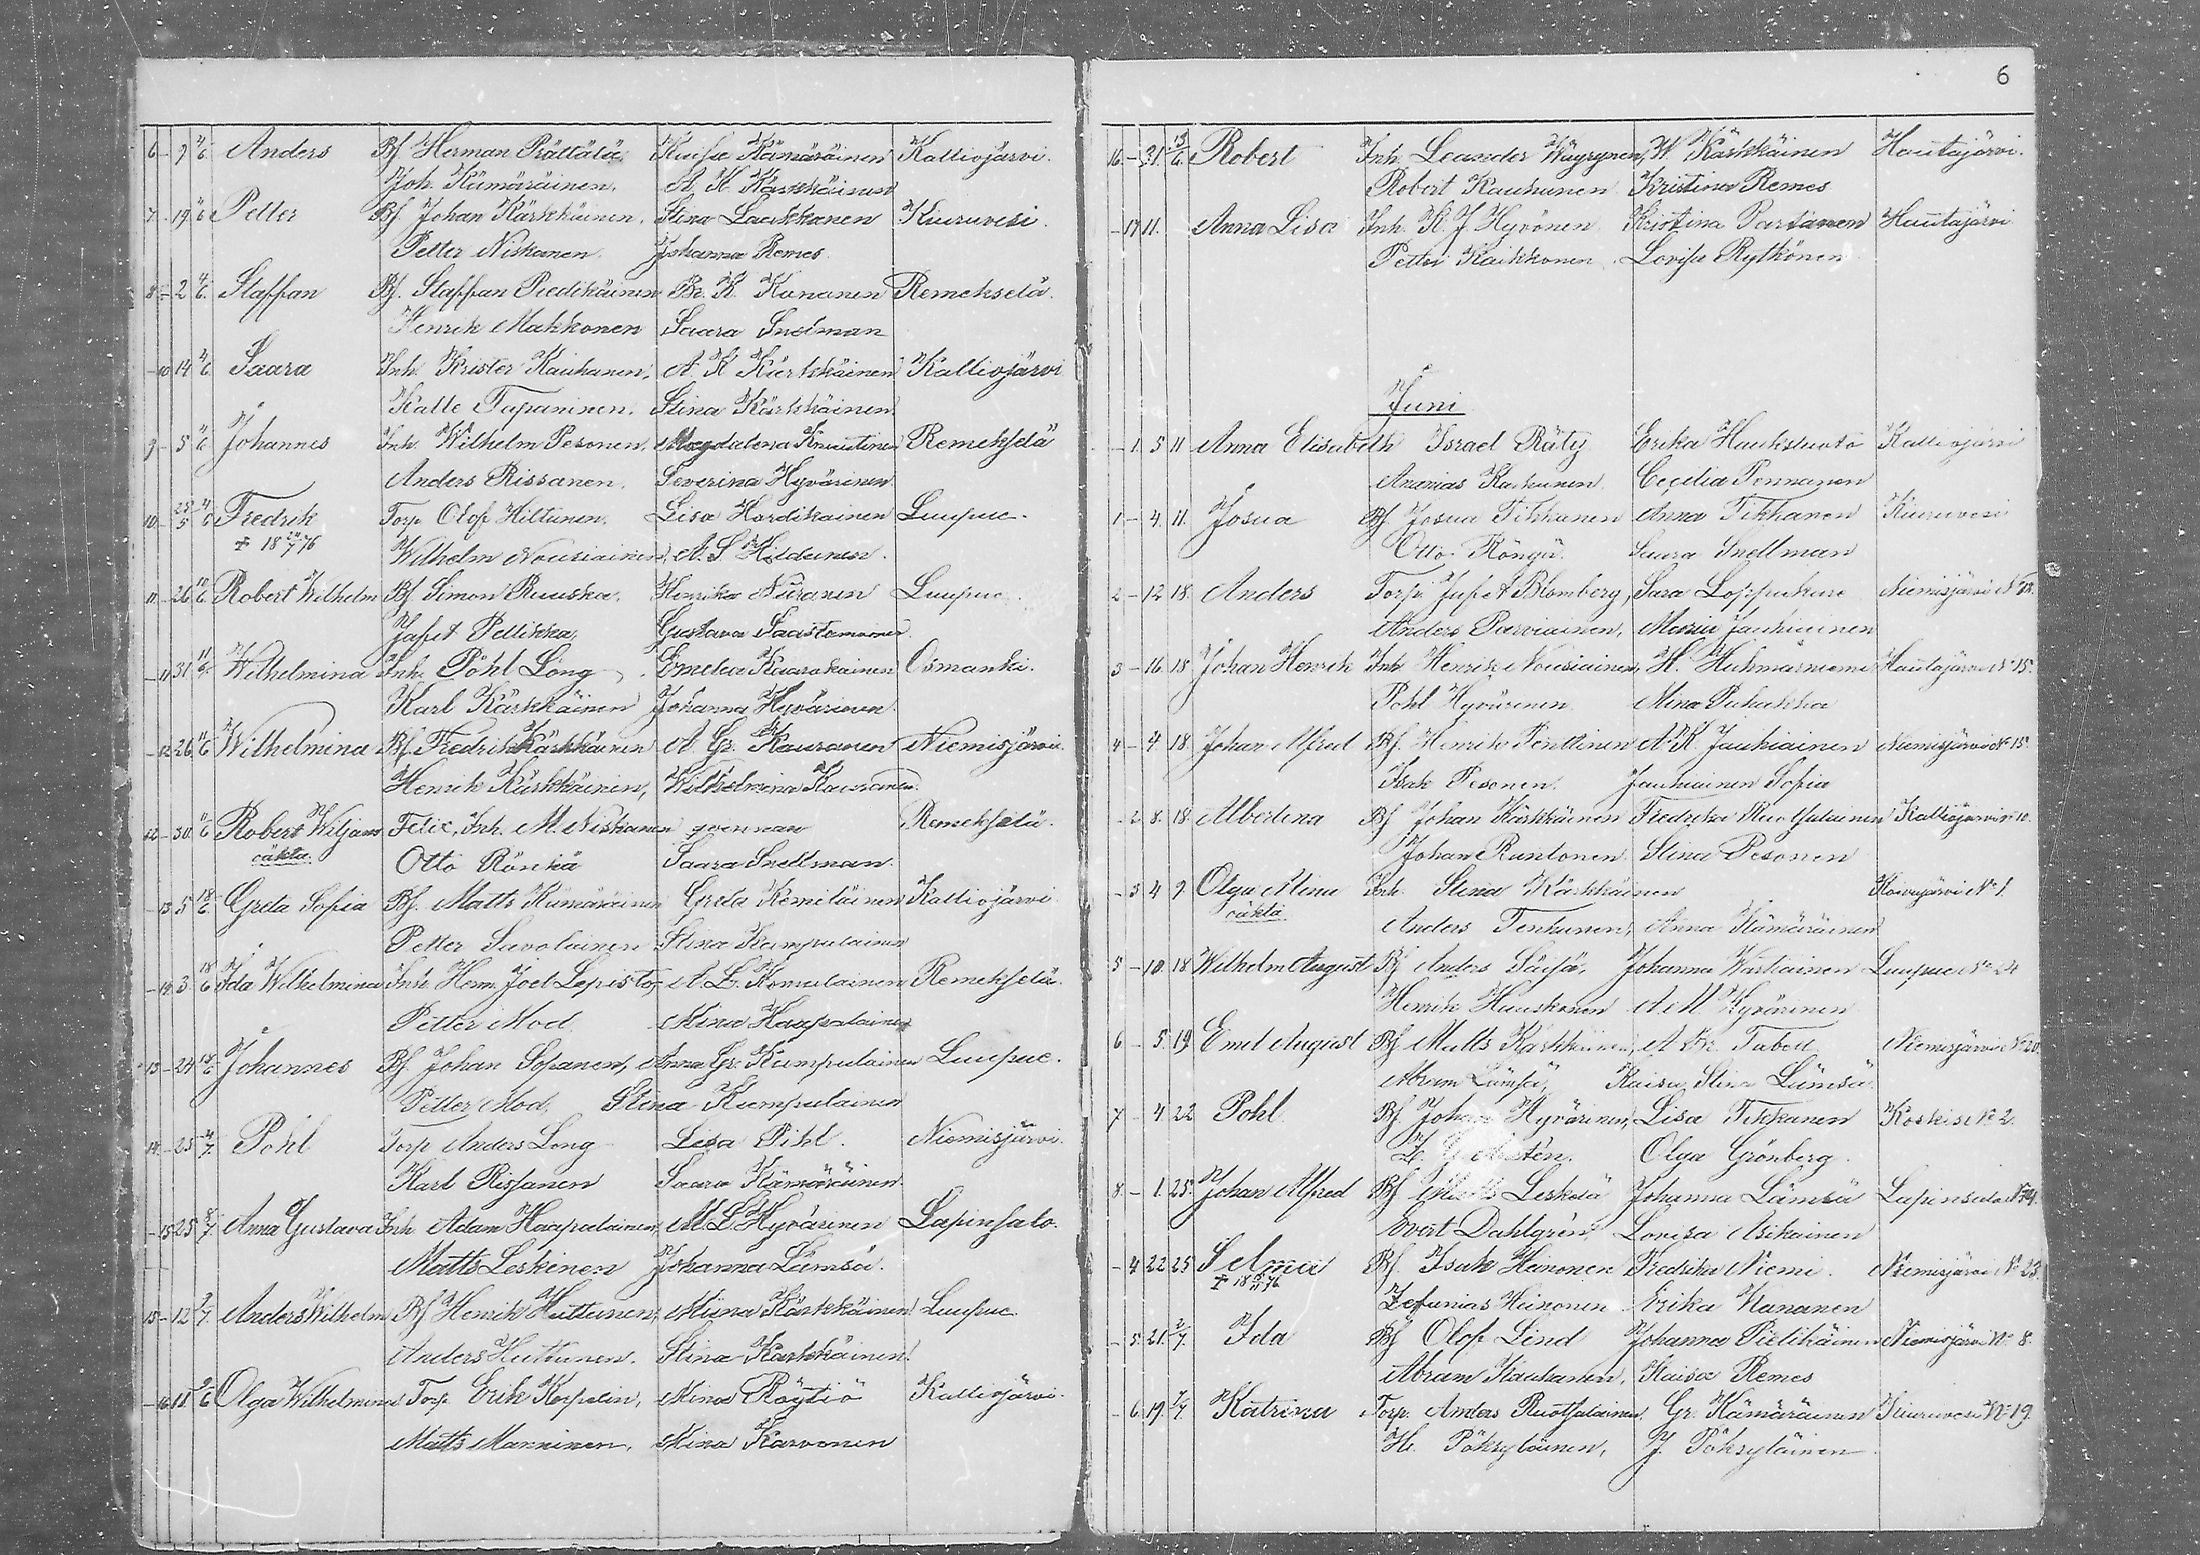 6 - 7 4/6 Anders Bf Herman Prättälä, Kaisa Kämäräinen Kalliojärvi.
Joh. Kämäräinen, A. K. Kärkkäinen
7 - 19 4/6 Petter Bf Johan Kärkkäinen, Stina Laukkanen Kiuruvesi.
Petter Niskanen. Johanna Remes.
8 - 2 4/6 Staffan Bf. Staffan Piedikäinen Br. K. Kananen Remekselä.
Henrik Makkonen Saara Snelman
- 10 14 4/6 Saara Inh. Krister Kauhanen, A. K. Kärkkäinen Kalliojärvi
Kalle Tapaninen. Stina Kärkkäinen.
9 - 5 4/6 Johannes Inh. Wilhelm Pesonen, Magdalena Knuutinen Remekselä
Anders Rissanen, Severina Hyvärinen
10 - 25/5 4/6 Fredrik Torp. Olof Hiltunen. Lisa Hardikainen Luupue.
Wilhelm Nousiainen, A. S. Hildunen.
11 - 26 10/6 Robert Wilhelm Bf Simon Ruuska. Henrika Niiranen Luupue.
Jafet Pellikka, Gustava Saastamoinen
- 11 31 11/6 Wilhelmina Inh. Pohl Long Emelia Kaarakainen Osmanki.
Karl Kärkkäinen Johanna Hyvärinen.
- 12 26 11/6 Wilhelmina Bf. Fredrik Kärkkäinen A. Gr. Kauranen Niemisjärvi.
Henrik Kärkkäinen, Wilhelmina Kauranen.
12 - 30 11/6 Robert Wiljam Felic, Inh. M. Niskanen qvinnan Remekselä.
oäkta. Otto Rönkä Saara Snellman.
- 13 5 18/6 Greta Sofia Bf. Matts Kämäräinen Greta Kemiläinen Kalliojärvi
Petter Savolainen Stina Kumpulainen
- 14 3 18/6 Ida Wilhelmina Inh. Herm. Joel Lepistö, A. L. Komulainen Remekselä.
Petter Mod. Mina Haapalainen
13 - 24 18/6 Johannes Bf. Johan Sopanen, Anna Gr. Kumpulainen Luupue.
Petter Mod, Stina Kumpulainen
14 - 25 2/7 Pohl Torp Anders Long Lisa Pihl. Niemisjärvi.
Karl Rissanen Saara Kämäräinen.
- 15 25 8/7 Anna Gustava Inh. Adam Haapalainen, M. L. Hyvärinen Lapinsalo.
Matts Leskinen Johanna Lämsä.
15 - 12 9/7 Anders Wilhelm Bf Henrik Huttunen, Miina Kärkkäinen Luupue
Anders Huttunen. Stina Kärkkäinen
- 16 18 9/6 Olga Wilhelmina Torp. Erik Korpelin, Mina Röytiö Kalliojärvi.
Matts Manninen, Mina Karvonen
6
16 - 31 13/6 Robert Inh. Leander Wäyrynen, W. Kärkkäinen Hautajärvi.
Robert Kauhanen Kristina Remes
- 17 11. Anna Lisa Inh. K. J. Hyvönen Kristina Partanen Hautajärvi
Petter Kaikkonen. Lovisa Rytkönen
Juni
- 1. 5 11 Anna Elisabeth Israel Räty Erika Kalliojärvi
Ananias Kauhanen. Cecilia Pennanen
1 - 4. 11. Josua Bf. Josua Tikkanen Anna Tikkanen Kiuruvesi
Otto Rönkä. Saara Snellman
2 - 12 18. Anders Torp. Jafet Blomberg, Sara Loppukare Niemisjärvi
Anders Parviainen, Maria Jauhiainen
3 - 16 18 Johan Henrik Inh Henrik Nousiainen, H. Huhmarniemi Hautajärvi No 15.
Pohl Hyvärinen Mina Puhakka
4 - 4 18. Johan Alfred Bf. Henrik Penttinen A. K. Jauhiainen Niemisjärvi No 15.
Isak Pesonen. Jauhiainen Sofia
- 2. 8. 18. Albertina Bf Johan Kärkkäinen Fredrika Ruotsalainen Kalliojärvi No 10.
Johan Runtonen. Stina Pesonen
- 3 4 9 Olga Mina Inh. Stina Kärkkäinen No 1.
oäkta. Anders Tenhunen, Anna Kämäräinen
5 - 10. 18 Wilhelm August Bf Anders Säisä, Johanna Wartiainen Luupue No 24
Henrik Huuskonen A. M. Hyvärinen
6 - 5. 19 Emil August Bf Matts Kärkkäinen, A. Br. Tabell Niemisjärvi No 20.
Abram Lämsä, Kaisa Stina Lämsä
7 - 4 22 Pohl Bf Johan Hyvärinen, Lisa Tikkanen Koskise No 2.
Olga Grönberg.
8 - 1. 25. Johan Alfred Bf Matts Leskelä Johanna Lämsä Lapinsalo
Evert Dahlgren. Lovisa Asikainen
- 4 22 25 Selma Bf. Isak Heinonen Fredrika Niemi. Niemisjärvi No 23.
Zefanias Heinonen Erika Kananen
- 5. 21. 2/7. Ida Bf Olof Lind Johanna Pietikäinen Niemisjärvi No 8.
Abram Kauhanen, Kaisa Remes
- 6. 19. 7/7. Katrina Torp. Anders Ruotsalainen, Gr. Kämäräinen Kiuruvesi No 19.
H. Pöksyläinen, J. Pöksyläinen